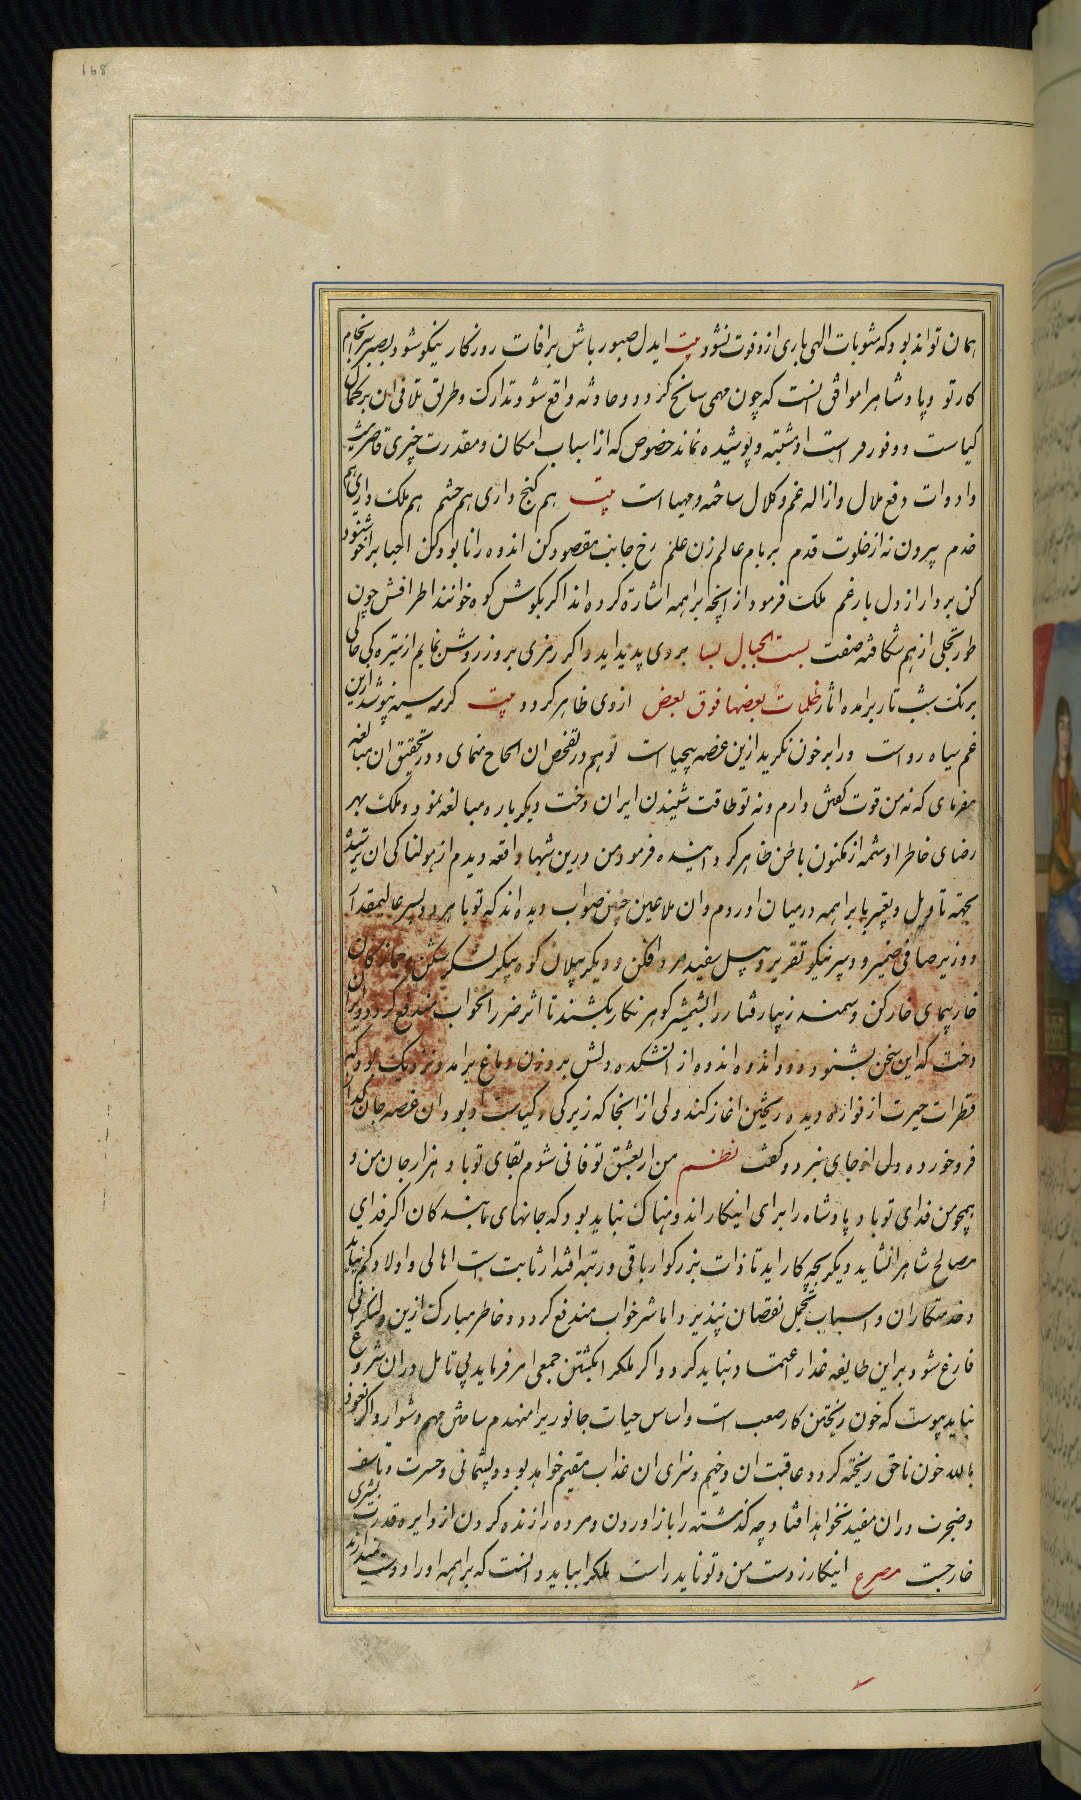 168
همان تواند بود که مثوبات الهی باری ازو فوت نشود بیت ایدل صبور باش بر افات روزکار نیکو شود بصبر سرانجام
کار تو و پادشاهرا موافق انست که چون مهمی سانح کردد و حادثه واقع شود تدارک و طریق تلافی ان بر کمال
کیاست و وفور فراست او مشتبه و پوشیده نماند خصوص که از اسباب امکان و مقدرت چیزی قاصر نیست
و ادوات دفع ملال و ازاله غم و کلال ساخته و مهیا است بیت هم کنج داری هم حشم هم ملک داری هم
خدم بیرون نه از خلوت قدم بر بام عالم زن علم رخ جانب مقصود کن اندوه را نابود کن احبا بر را خوشنود
کن بردار از دل بار غم ملک فرمود از انچه براهمه اشارة کرده اند اکر بکوش کوه خوانند اطرافش چون
طور تجلی از هم شکافته صفت بست الجبال بسا بروی پدید اید و اکر رمزی بروز روشن نمایم از تیره کی حالی
برنک شب تار برامده اثار ظلمات بعضها فوق بعض ازوی ظاهر کردد بیت کرمه سیه بپوشد ازین
غم سیاه رواست ور ابر خون نکرید ازین غصه بیحیا است تو هم در تفحص ان الحاح منمای و در تحقیق ان مبالغه
مفرمای که نه من قوت کفتن دارم و نه تو طاقت شنیدن ایران دخت دیکر باره مبالغه نمود و ملک بهر
رضای خاطر او شمه از مکنون باطن ظاهر کردانیده فرمود من درین شبها واقعه دیدم از هولناکی ان بترسید
بجهته تاویل و تعبیر با براهمه در میان اوردم و ان ملاعین چنین صواب دیده اند که تو با هر دو پسر عالیمقدار
و وزیر صافی ضمیر و دبیر نیکو تقریر و پیل سفید مرد افکن و دیکر پیلان کوه پیکر لشکر شکن و جمازکان
خار پیمای خار کن و سمند زیبا رفتار را بشمشیر کوهر نکار بکشند تا اثر ضرر انخواب مندفع کردد ایران
دخت که این سخن بشنود دود اندوه از اتشکده دلش بروزن دماغ برامد و نزدیک بود که
قطرات حیرت از فواره دیده ریختن اغاز کند ولی از انجا که زیرکی و کیاست او بود ان غصه جان کداز
فرو خورده دل از جای نبرد و کفت نظم من ار بعشق تو فانی شوم بقای تو باد هزار جان من و
همچو من فدای تو باد پادشاه را برای اینکار اندوهناک نباید بود که جانهای بندکان اکر فدای
مصالح شاهرا نشاید دیکر بچه کار اید تا ذات بزرکوار باقی و رتبه اقتدار ثابت است اهالی و اولاد کم نیاید
و خدمتکاران و اسباب تجمل نقصان نپذیرد اما شر خواب مندفع کردد و خاطر مبارک ازین دلنکرانی
فارغ شود بر این طایفه غدار اعتماد نباید کرد و اکر ملکرا بکشتن جمعی امر فرماید بی تامل دران شروع
نباید پیوست که خون ریختن کار صعب است و اساس حیات جانوریرا منهدم ساختن مهم دشوار و اکر نعوذ
بالله خون ناحق ریخته کردد عاقبت ان وخیم و سزای ان عذاب مقیم خواهد بود و پشیمانی و حسرت و تاسف
و ضجرت دران مفید نخواهد افتاد چه کذشته را باز اوردن و مرده را زنده کردن از دایره قدرت بشری
خارجست مصرع اینکار ز دست من و تو ناید راست ملکرا بباید دانست که براهمه او را دوست نمیدارند